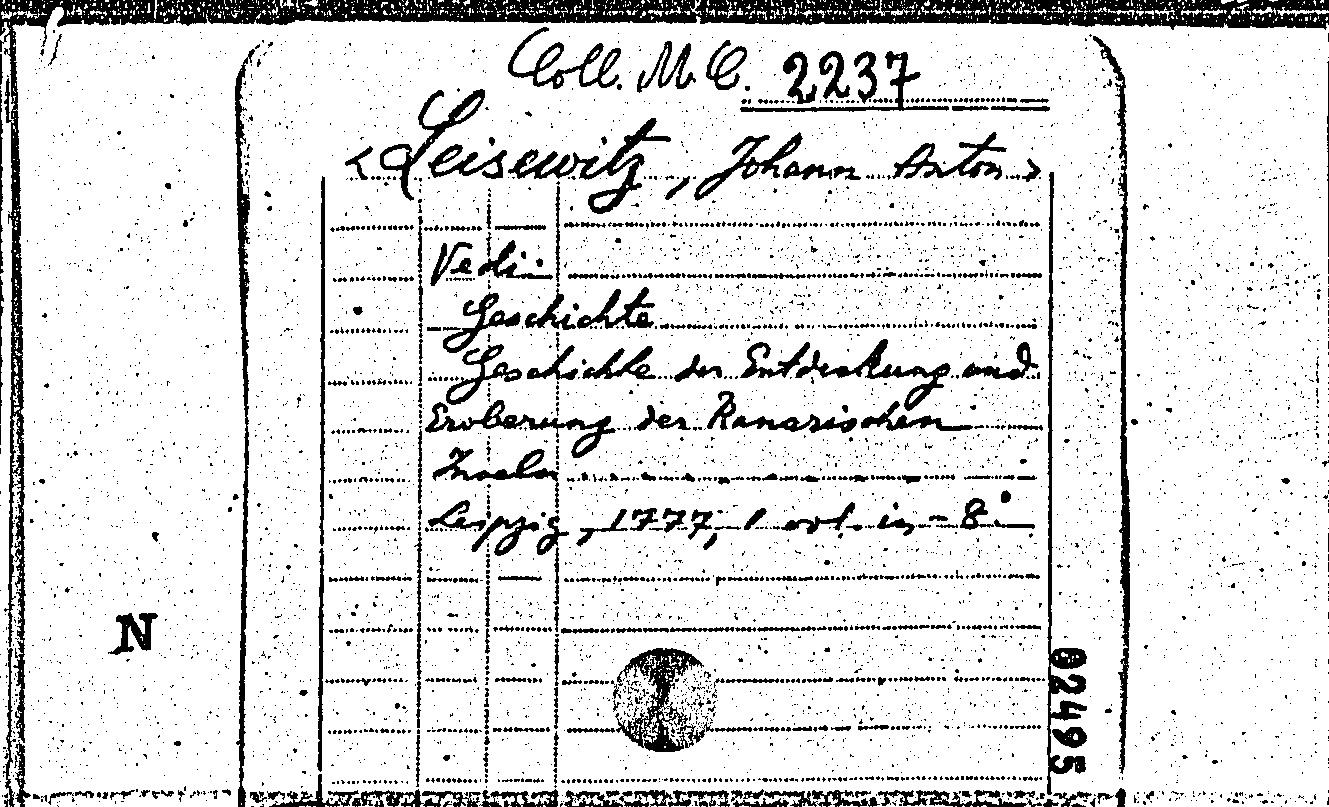 Coll. M. C. 2237
<Leisewitz, Johann Anton>
Vedi:
Geschichte
Geschichte der Entdeckung und
Eroberung der Kanarischen
Inseln
Leipzig, 1777, 1 vol. in-8°
N
02495